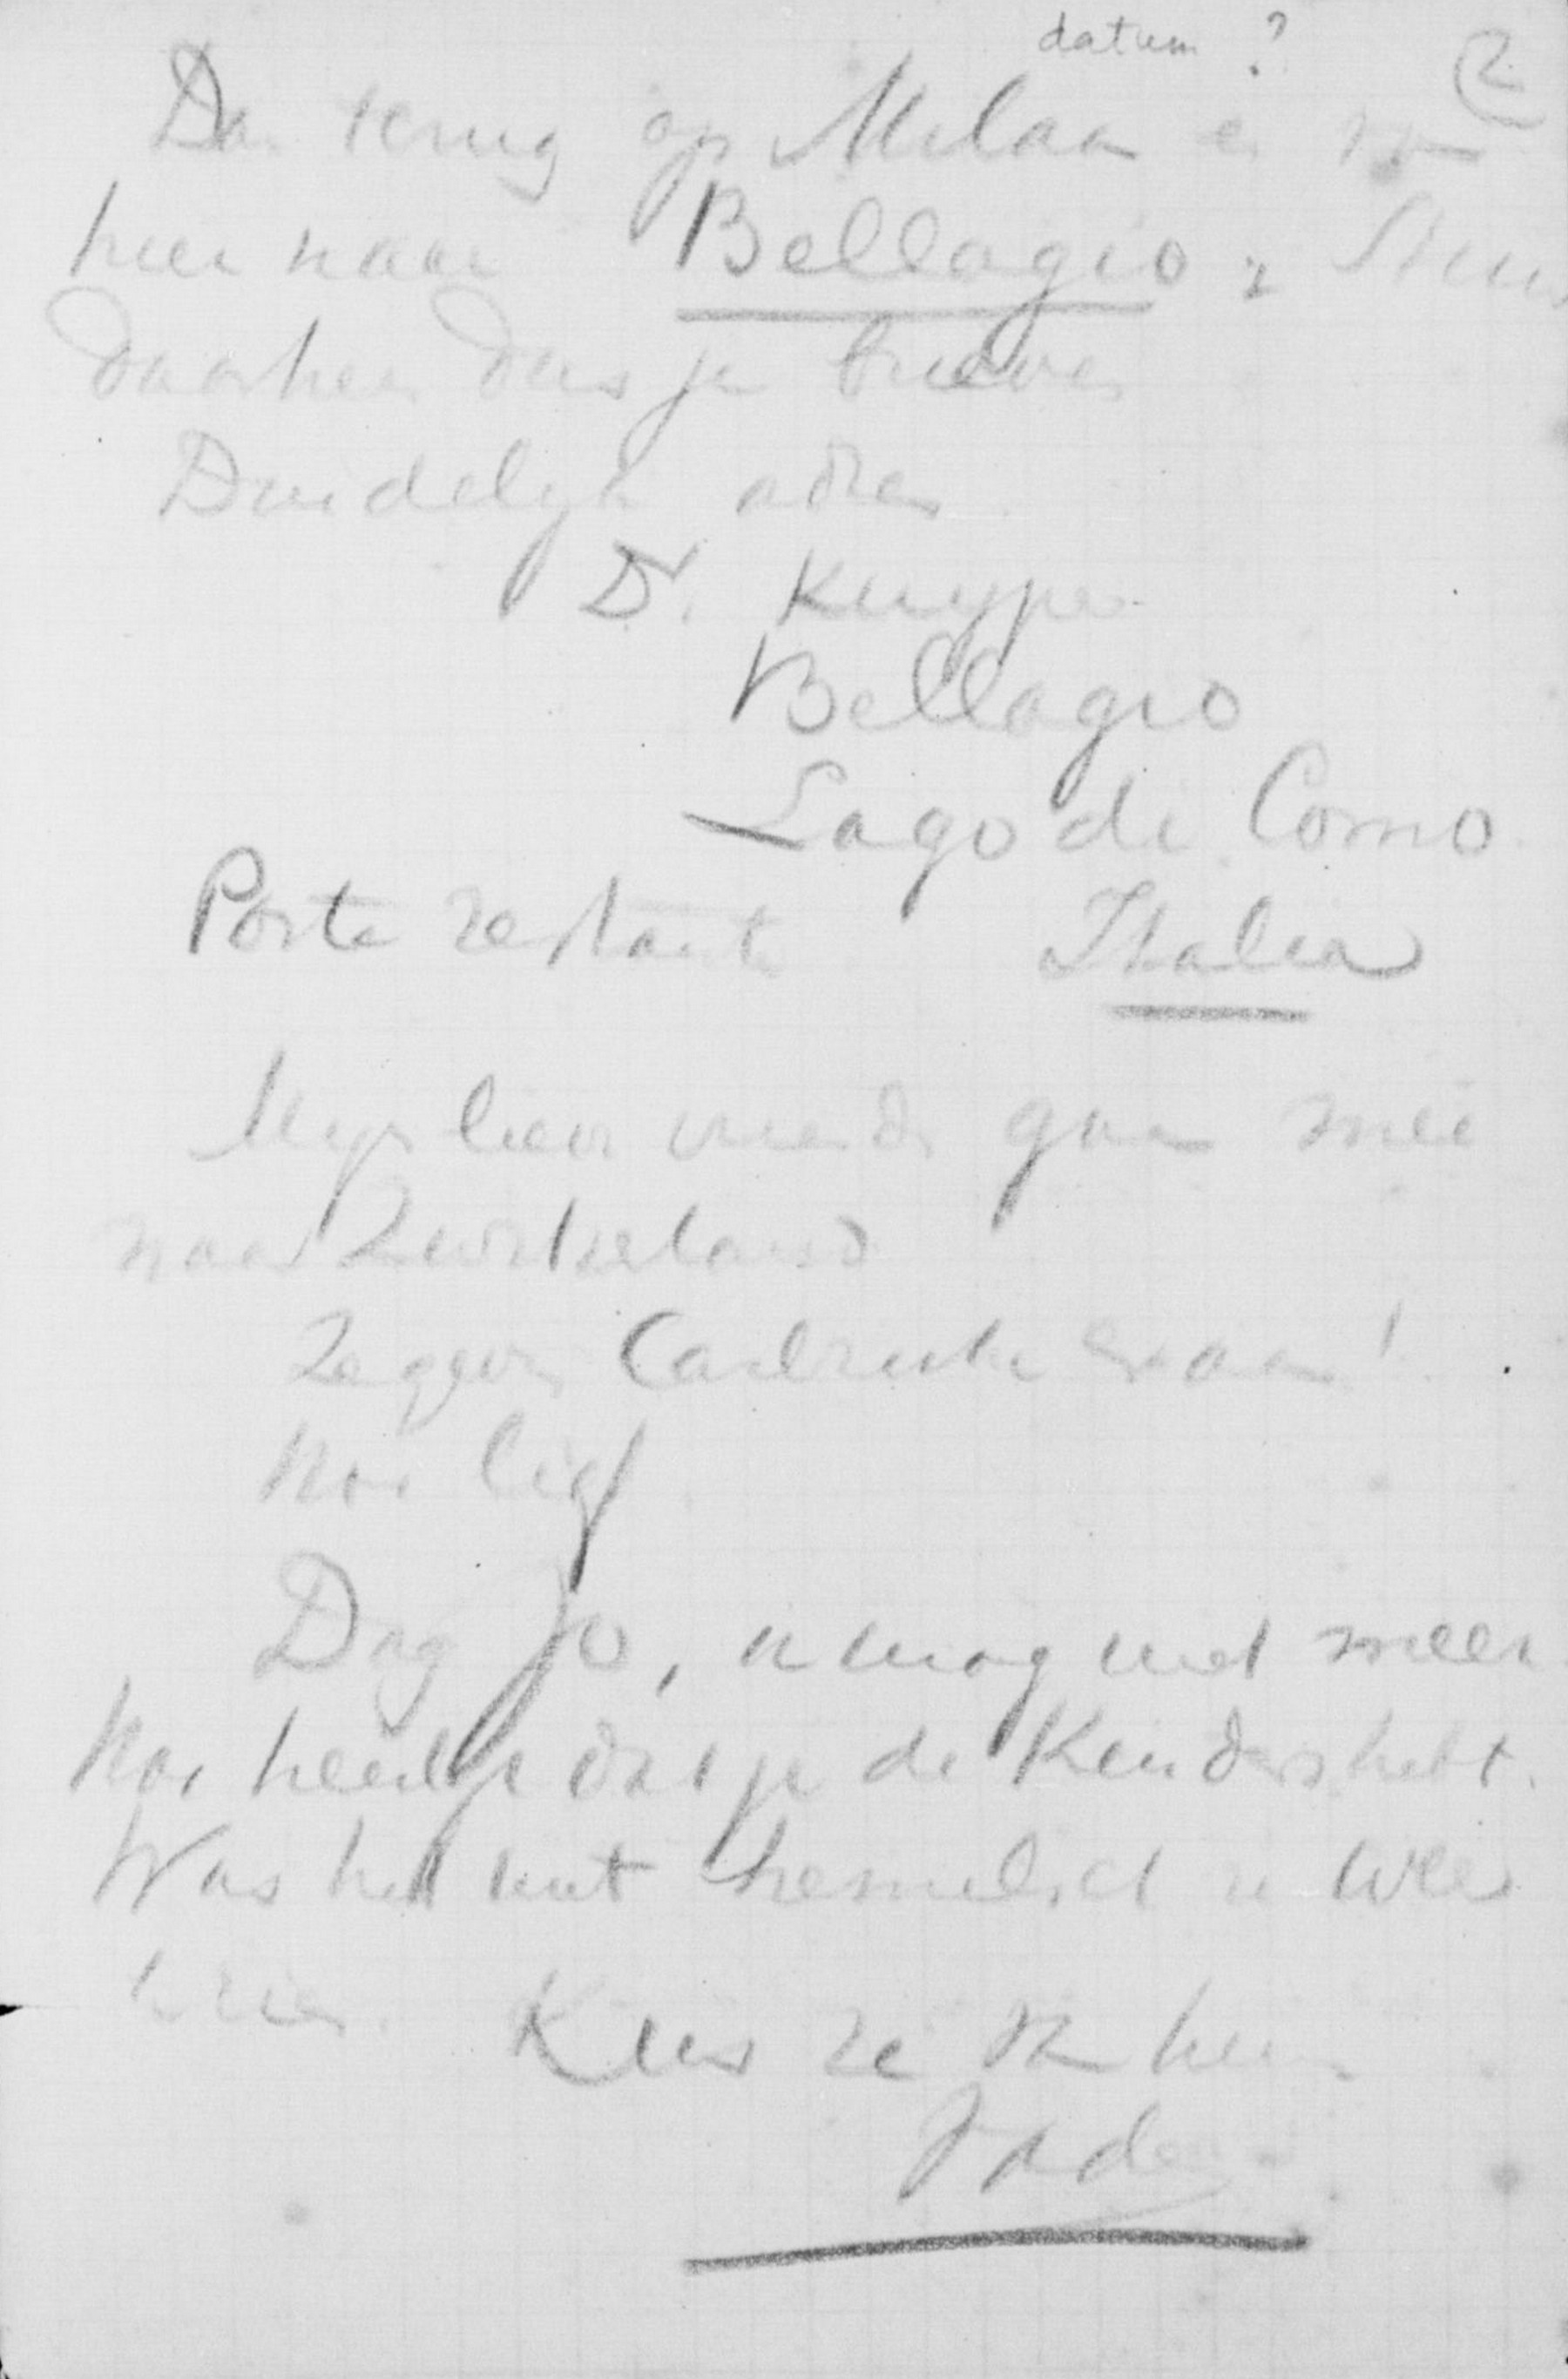 datum ?
2
Dan terug op Milaan en van
hier naar Bellagio. Stuur
daarheen dus je brieven
Duidelyk adres
Dr. Kuyper
Bellagio
Lago di Como
Poste restante Italia
Myn lieve vrienden gaan mee
naar Zwitserland
Zeggen Carlsruhe
Hoe lief
Dag Jo, u mag niet meer
Hoe heerlyk dat je de Kinders hebt.
Was het niet ze weer
Kus ze van hun
Vader